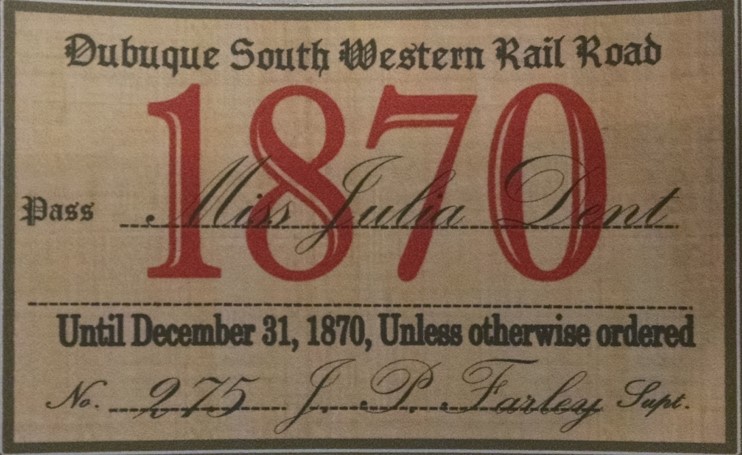 Dubuque South Western Rail Road
1870
Pass Miss Julia Dent
Until December 31, 1870, Unless otherwise ordered
No. 275 J. P. Farley Supt.